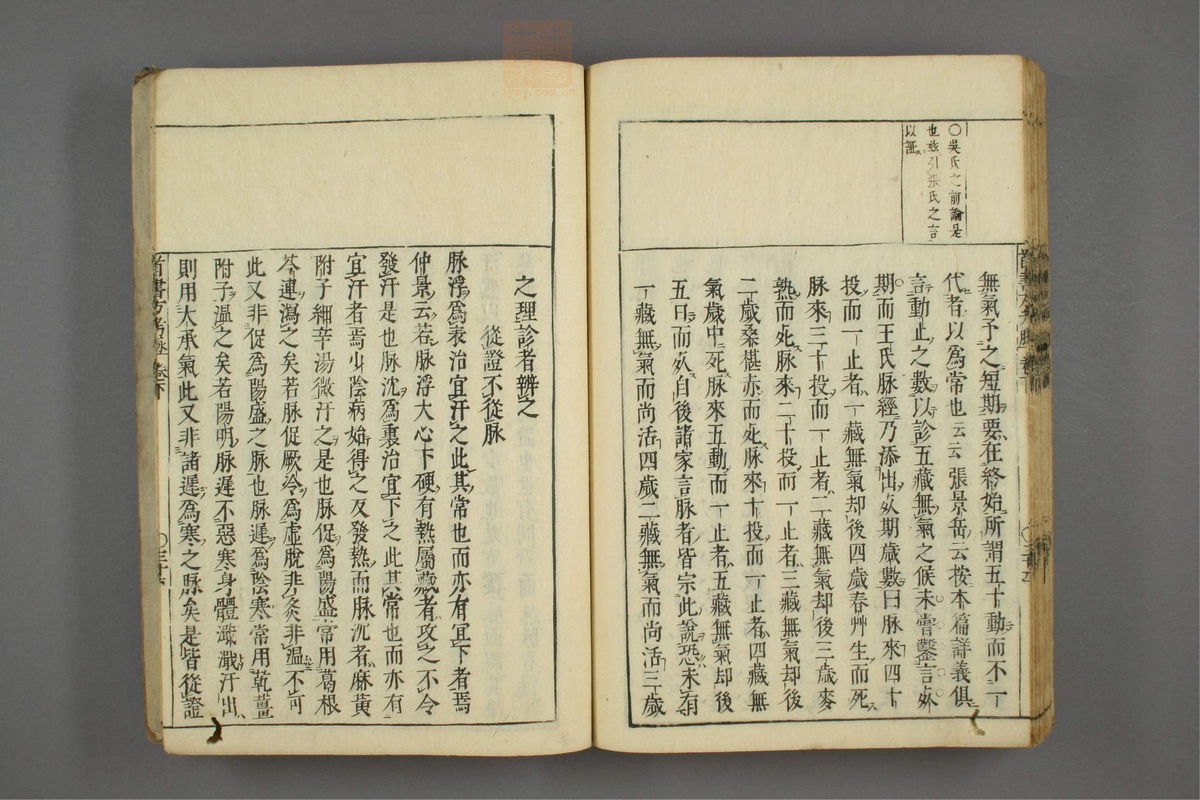 ○吳氏之前論是
也茲引張氏之言
以証
無氣予之短期要在終始所謂五十動而不一
代者以為常也云云張景岳云按本篇詳義俱
言動止之數以診五藏無氣之候未嘗鑿言死
期而王氏脉經乃添出死期歲數曰脉來四十
投而一止者一藏無氣却後四歲春艸生而死
脉來三十投而一止者二藏無氣却後三歲麥
熟而死脉來二十投而一止者三藏無氣却後
二歲桑椹赤而死脉來十投而一止者四藏無
氣歲中死脉來五動而一止者五藏無氣却後
五日而死自後諸家言脉者皆宗此說恐未有
一藏無氣而尚活四歲二藏無氣而尚活三歲
之理診者辨之
從證不從脉
脉浮為表治宜汗之此其常也而亦有宜下者焉
仲景云若脉浮大心下硬有熱屬藏者攻之不令
發汗是也脉沈為裏治宜下之此其常也而亦有
宜汗者焉少陰病始得之反發熱而脉沈者麻黄
附子細辛湯微汗之是也脉促為陽盛常用葛根
芩連瀉之矣若脉促厥冷為虛脫非灸非溫不可
此又非促為陽盛之脉也脉遲為陰寒常用乾薑
附子溫之矣若陽明脉遲不惡寒身體濈濈汗出
則用大承氣此又非諸遲為寒之脉矣是皆從證